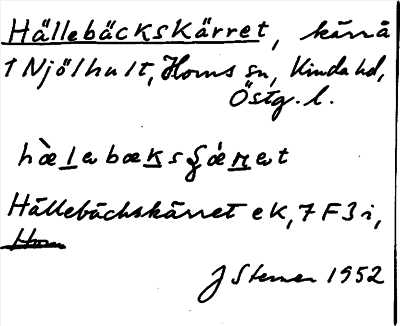 Hällebäckskärret, kärrå
1 Njölhult, Horns sn, Kinda hd,
Östg. l.
hæ̀lebæksʂǽret
Hällebäckskärret ek, 7 F 3 i,
J Stenen 1952